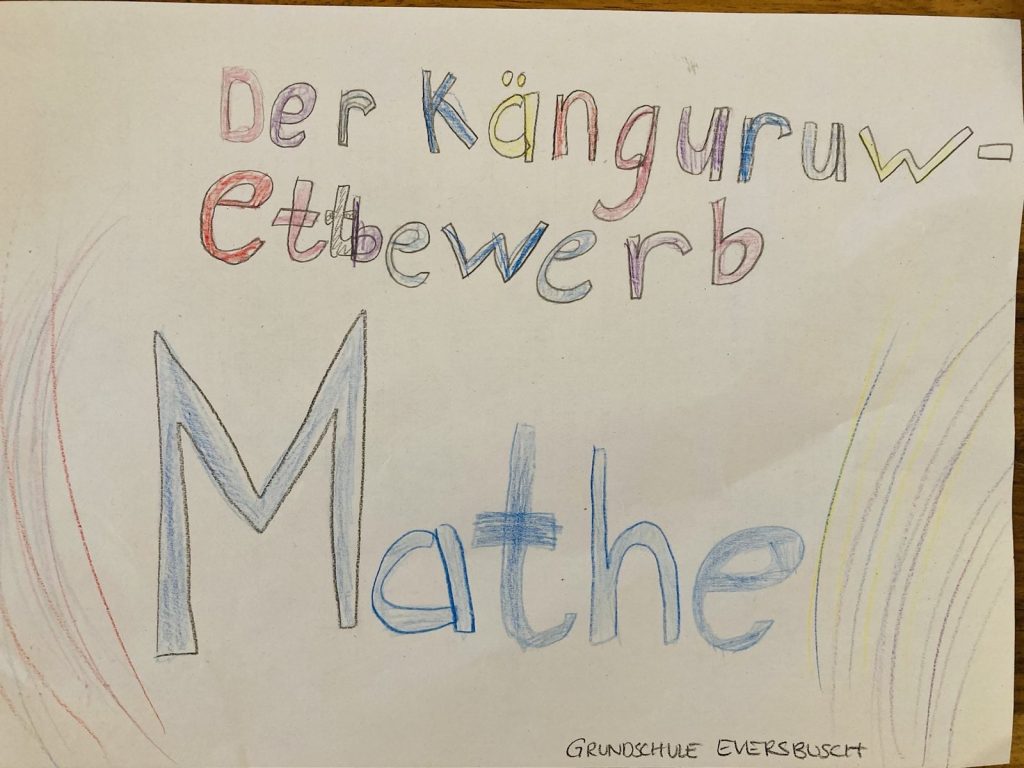 Der Känguruw-
ettbewerb
Mathe
GRUNDSCHULE EVERSBUSCH